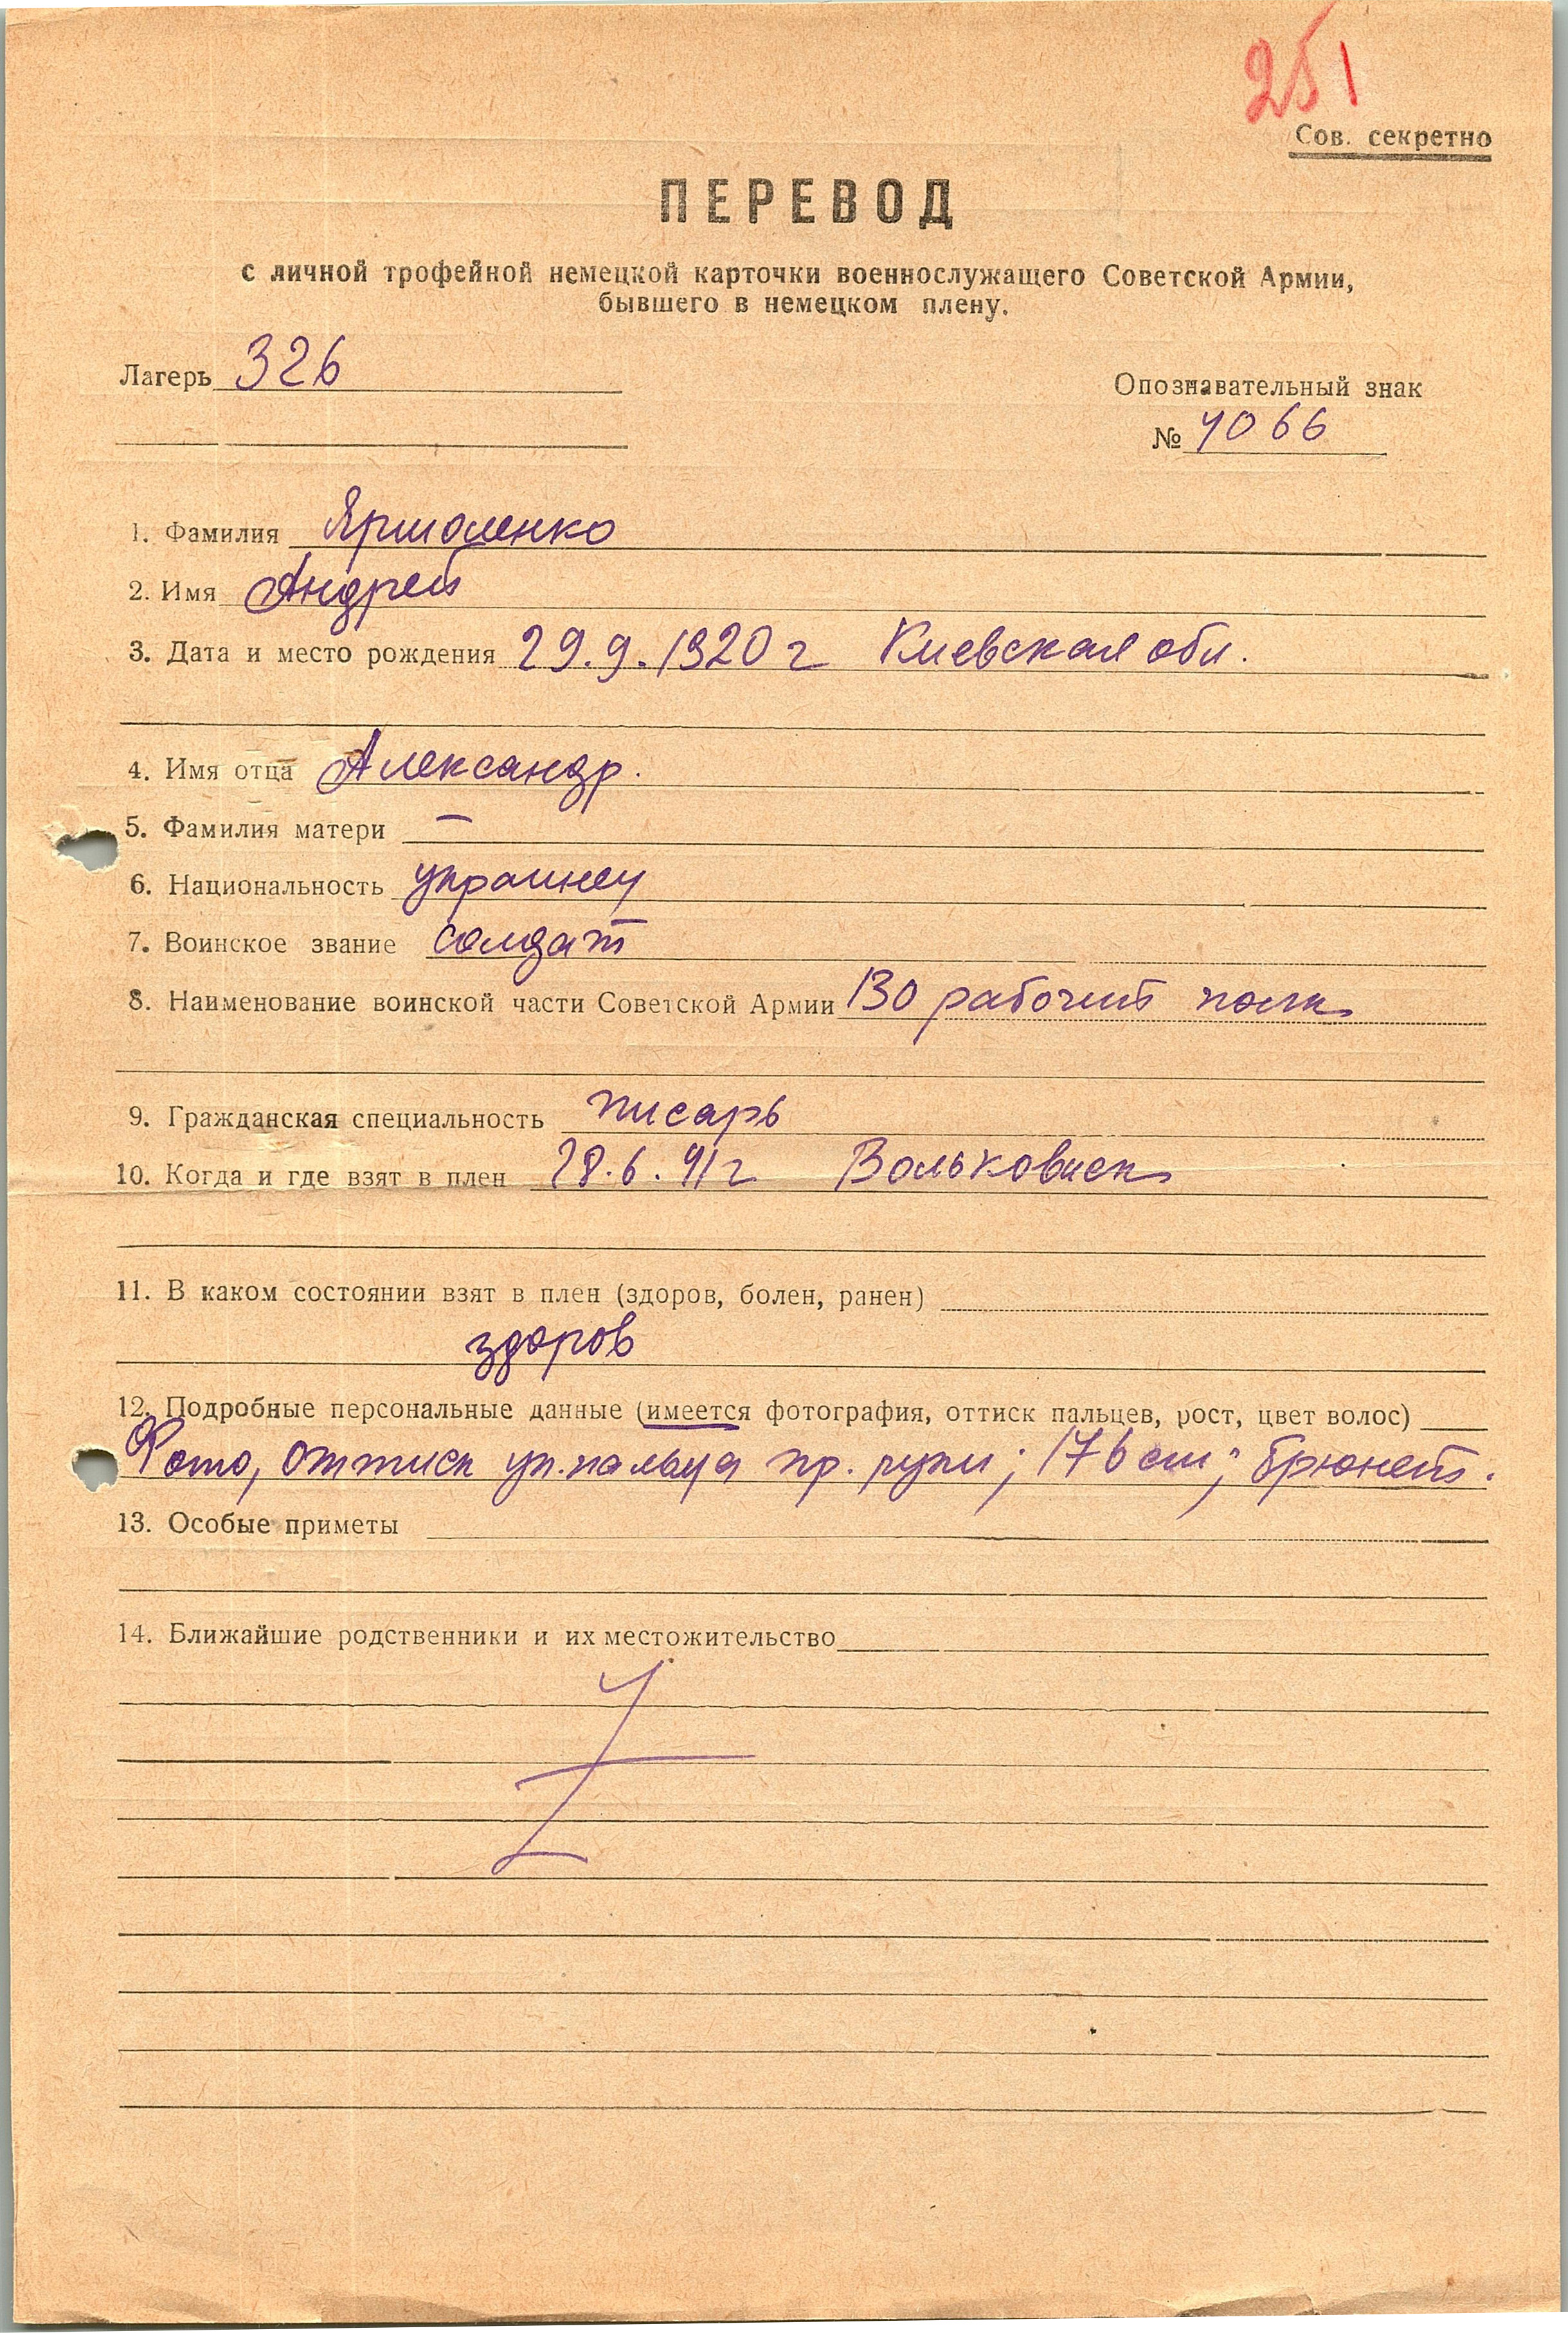 251
Сов. секретно
ПЕРЕВОД
с личной трофейной немецкой карточки военнослужащего Советской Армии,
бывшего в немецком плену.
Лагерь 326
Опознавательный знак
№ 4066
1. Фамилия Ярмоленко
2. Имя Андрей
3. Дата и место рождения 29.9.1920 г Киевская обл.
4. Имя отца Александр.
5. Фамилия матери —
6. Национальность украинец
7. Воинское звание солдат
8. Наименование воинской части Советской Армии 130 рабочий полк
9. Гражданская специальность писарь
10. Когда и где взят в плен 28.6.41 г Вольковиск
11. В каком состоянии взят в плен (здоров, болен, ранен)
здоров
12. Подробные персональные данные (имеется фотография, оттиск пальцев, рост, цвет волос)
Фото, оттиск ук. пальца пр. руки; 176 см; брюнет.
13. Особые приметы
14. Ближайшие родственники и их местожительство